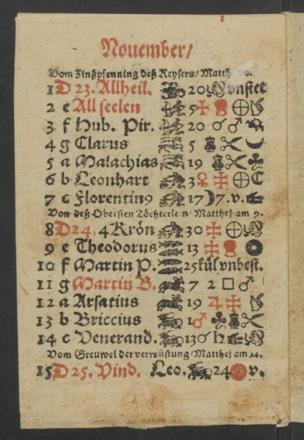 Nouember/
Vom Zinßpfenning deß Keysers/ Matth. 22.
1 D 23. Allheil. 20 Vnstet
2 e All seelen 5
3 f Hub. Pir. 20 ☌ ♂
4 g Clarus 5
5 a Malachias 19
6 b Leonhart 3 ♀
7 c Florentin9 17 ☽ 7. v.
Von deß Obersten Töchterle n/ Matthej am 9.
8 D 24. 4 Krön 30
9 e Theodorus 13
10 f Martin P. 25 kül vnbest.
11 g Martin B. 7 2 □ ♂
12 a Arsatius 19 ♃
13 b Briccius 1 ♂
14 c Venerand. 13 ☌ ♄
Vom Greuwel der verwüstung/ Matthej am 24.
15 D 25. Vind. Leo. 24 v.